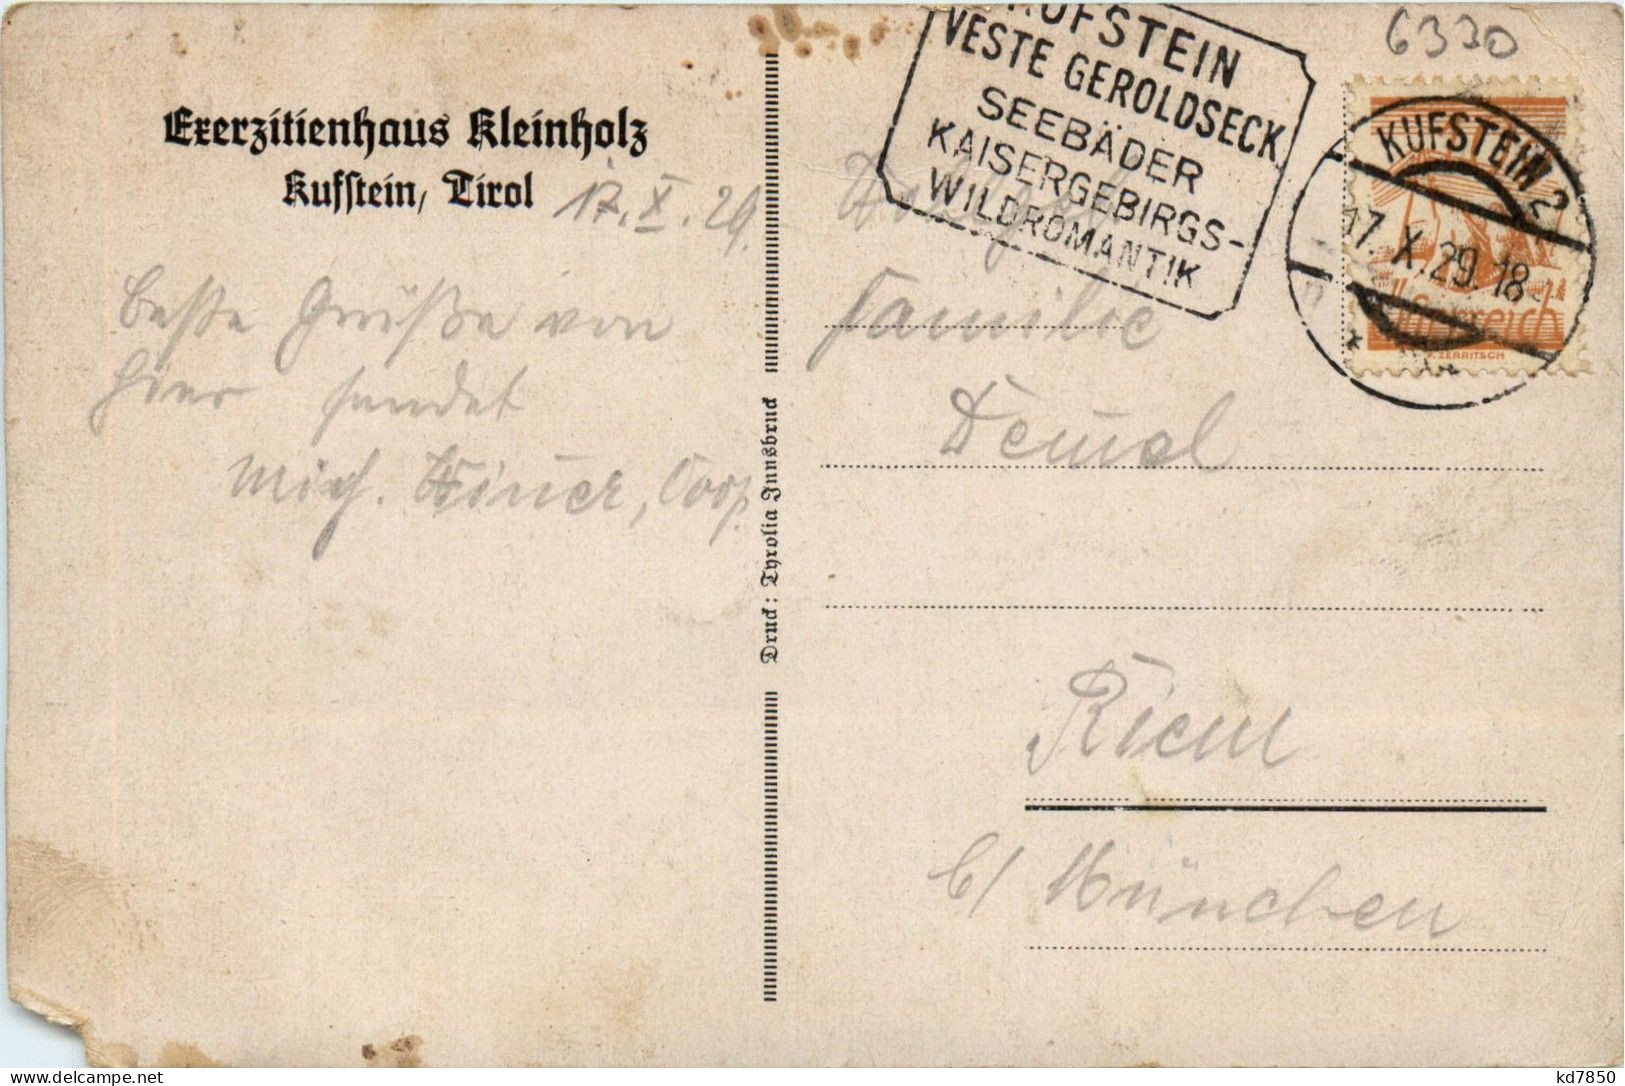 Exerzitienhaus Kleinholz
Kufstein, Tirol
17. X. 29.
Beste Grüße von
hier sendet
Mich.
Druck: Tyrolia Innsbruck
KUFSTEIN
VESTE GEROLDSECK
SEEBÄDER
KAISERGEBIRGS-
WILDROMANTIK
6330
KUFSTEIN 2
17. X. 29. 18
Österreich
F. ZERRITSCH
Familie
Demel
Riem
b/ München
kd7850